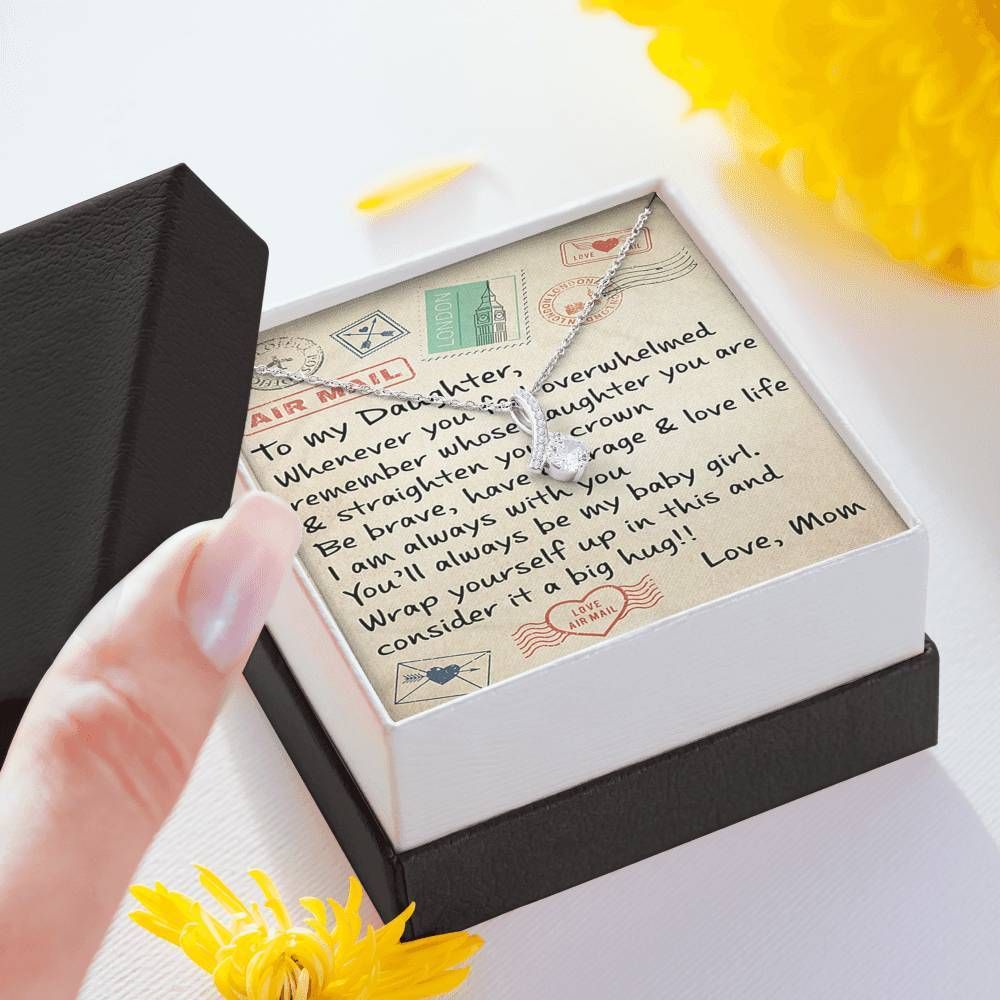 LOVE MAIL
LONDON
AIR MAIL
To my Daughter,
Whenever you feel overwhelmed
remember whose daughter you are
& straighten your crown
Be brave, have courage & love life
I am always with you
You'll always be my baby girl.
Wrap yourself up in this and
consider it a big hug!!
Love, Mom
LOVE
AIR MAIL